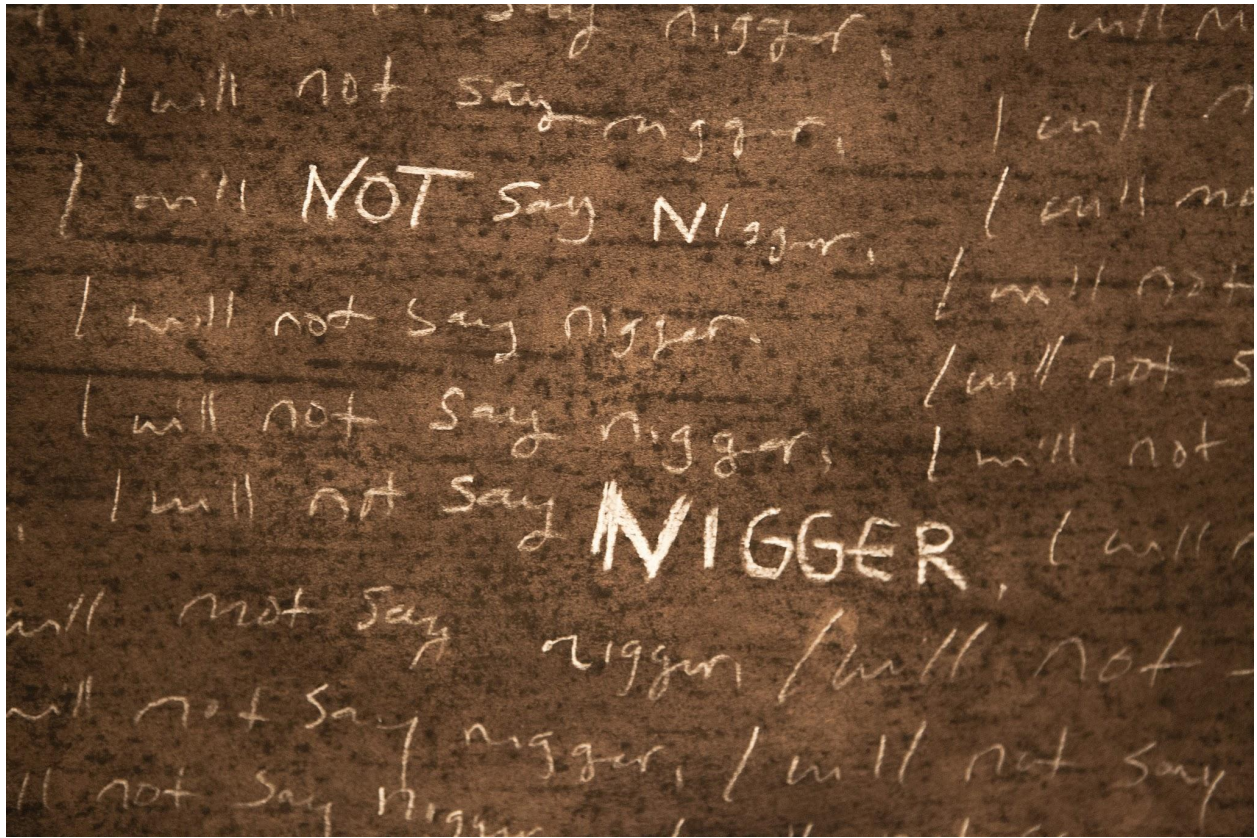 I will not say nigger, I will n
I will not say nigger, I will n
I will NOT say Nigger, I will no
I will not say nigger. I will not
I will not say nigger, I will not S
I will not say NIGGER, I will not
will not say nigger, I will
will not say nigger I will not
will not say nigger, I will not say
ll not say nigger